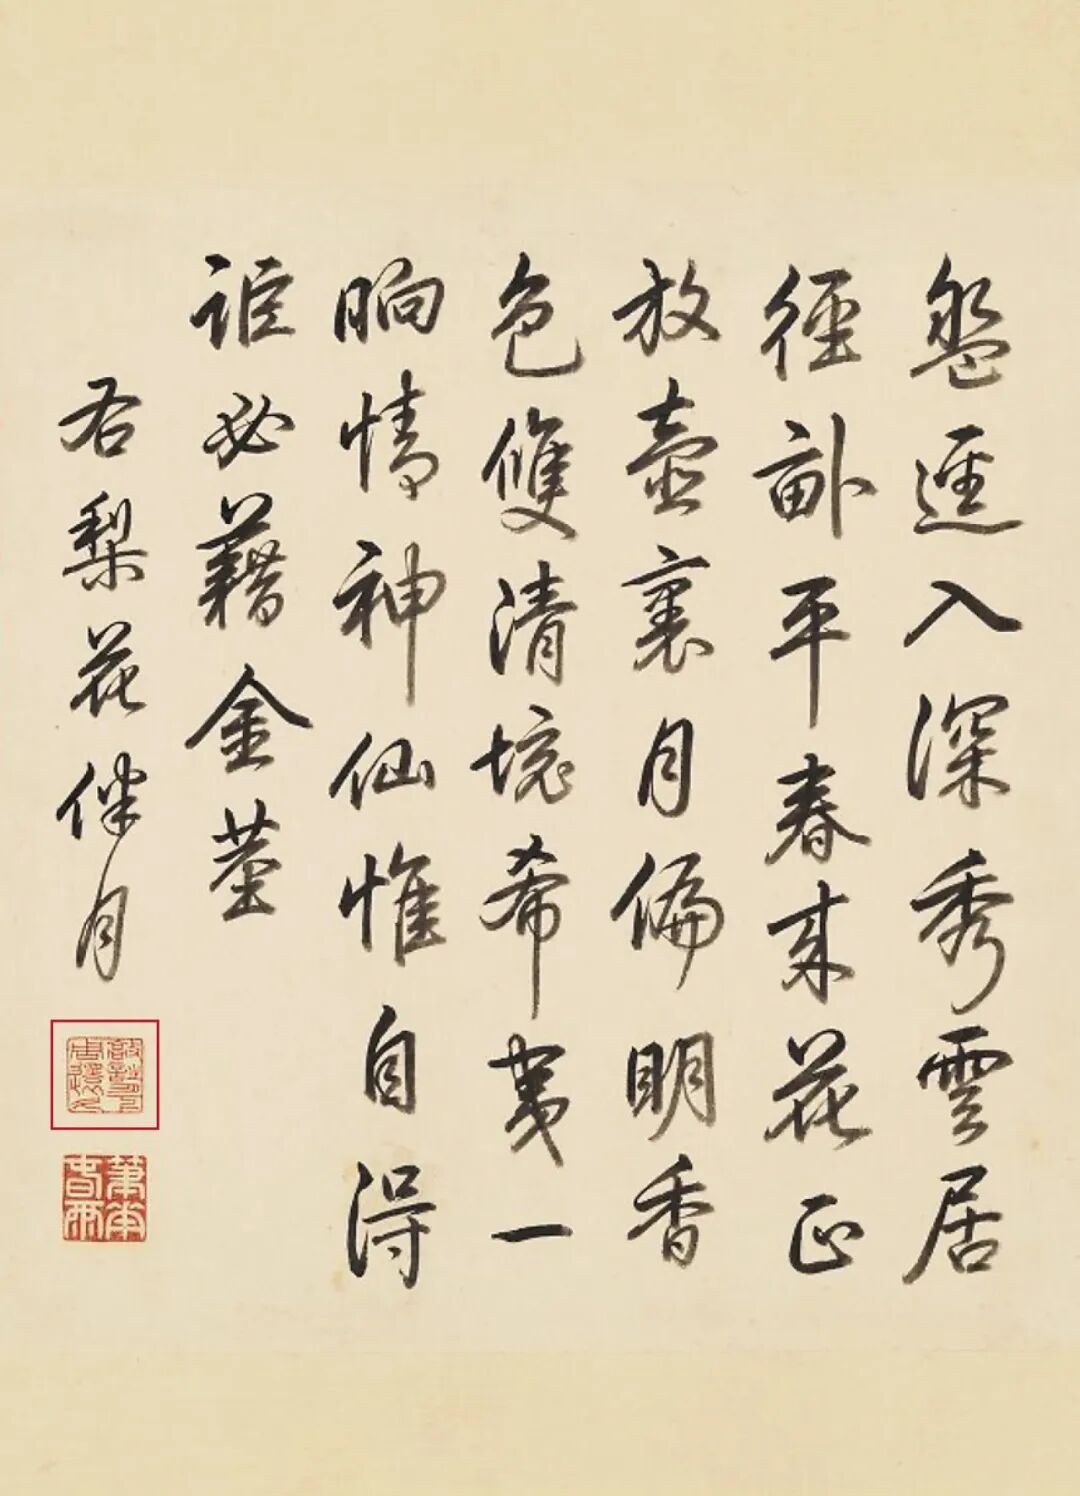 盤逕入深秀雲居
徑畝平春来花正
放壺裏月偏明香
色雙清境希夷一
晌情神仙惟自得
詎必藉金莖
右梨花伴月
筆華春雨